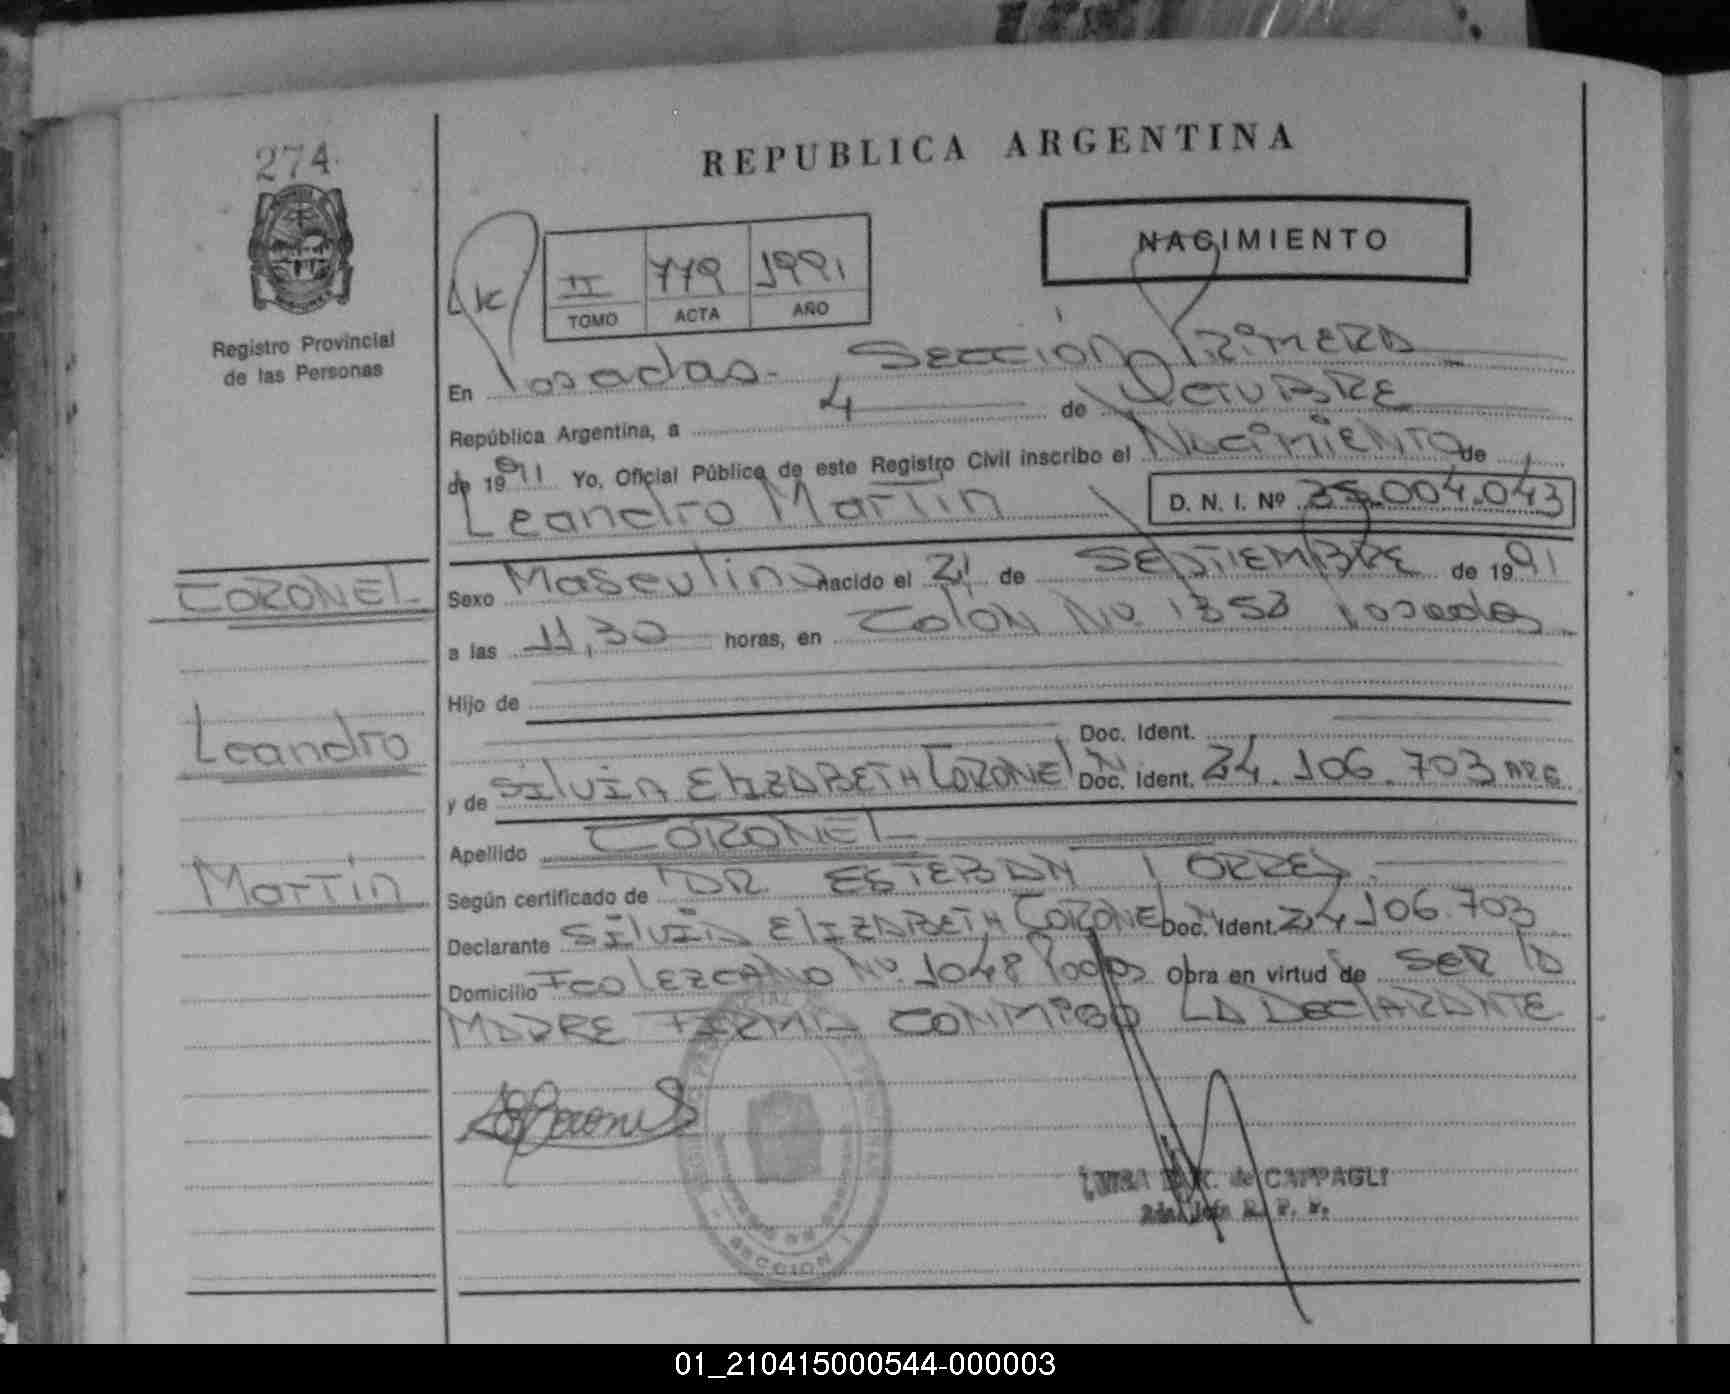 274
REPUBLICA ARGENTINA
NACIMIENTO
II 779 1991
TOMO ACTA AÑO
Registro Provincial
de las Personas
En Posadas.- Sección Primera
República Argentina, a 4 de OCTUBRE
de 1991 Yo, Oficial Público de este Registro Civil inscribo el Nacimiento de
Leandro Martín D. N. I. Nº 35.004.043
CORONEL
Sexo Masculino nacido el 21 de SEPTIEMBRE de 1991
a las 11,30 horas, en Colón No. 1353 Posadas
Hijo de
Doc. Ident.
Leandro
y de Silvia Elizabeth Coronel Doc. Ident. 24.106.703 ARG.
Apellido CORONEL
Martín
Según certificado de DR. ESTEBAN TORRES.
Declarante Silvia Elizabeth Coronel Doc. Ident. 24106.703
Domicilio Fco Lezcano No. 1048 Pdas Obra en virtud de ser la
MADRE FIRMA CONMIGO LA DECLARANTE
SECCION 1
de CAPPAGLI
R. P. P.
01_210415000544-000003